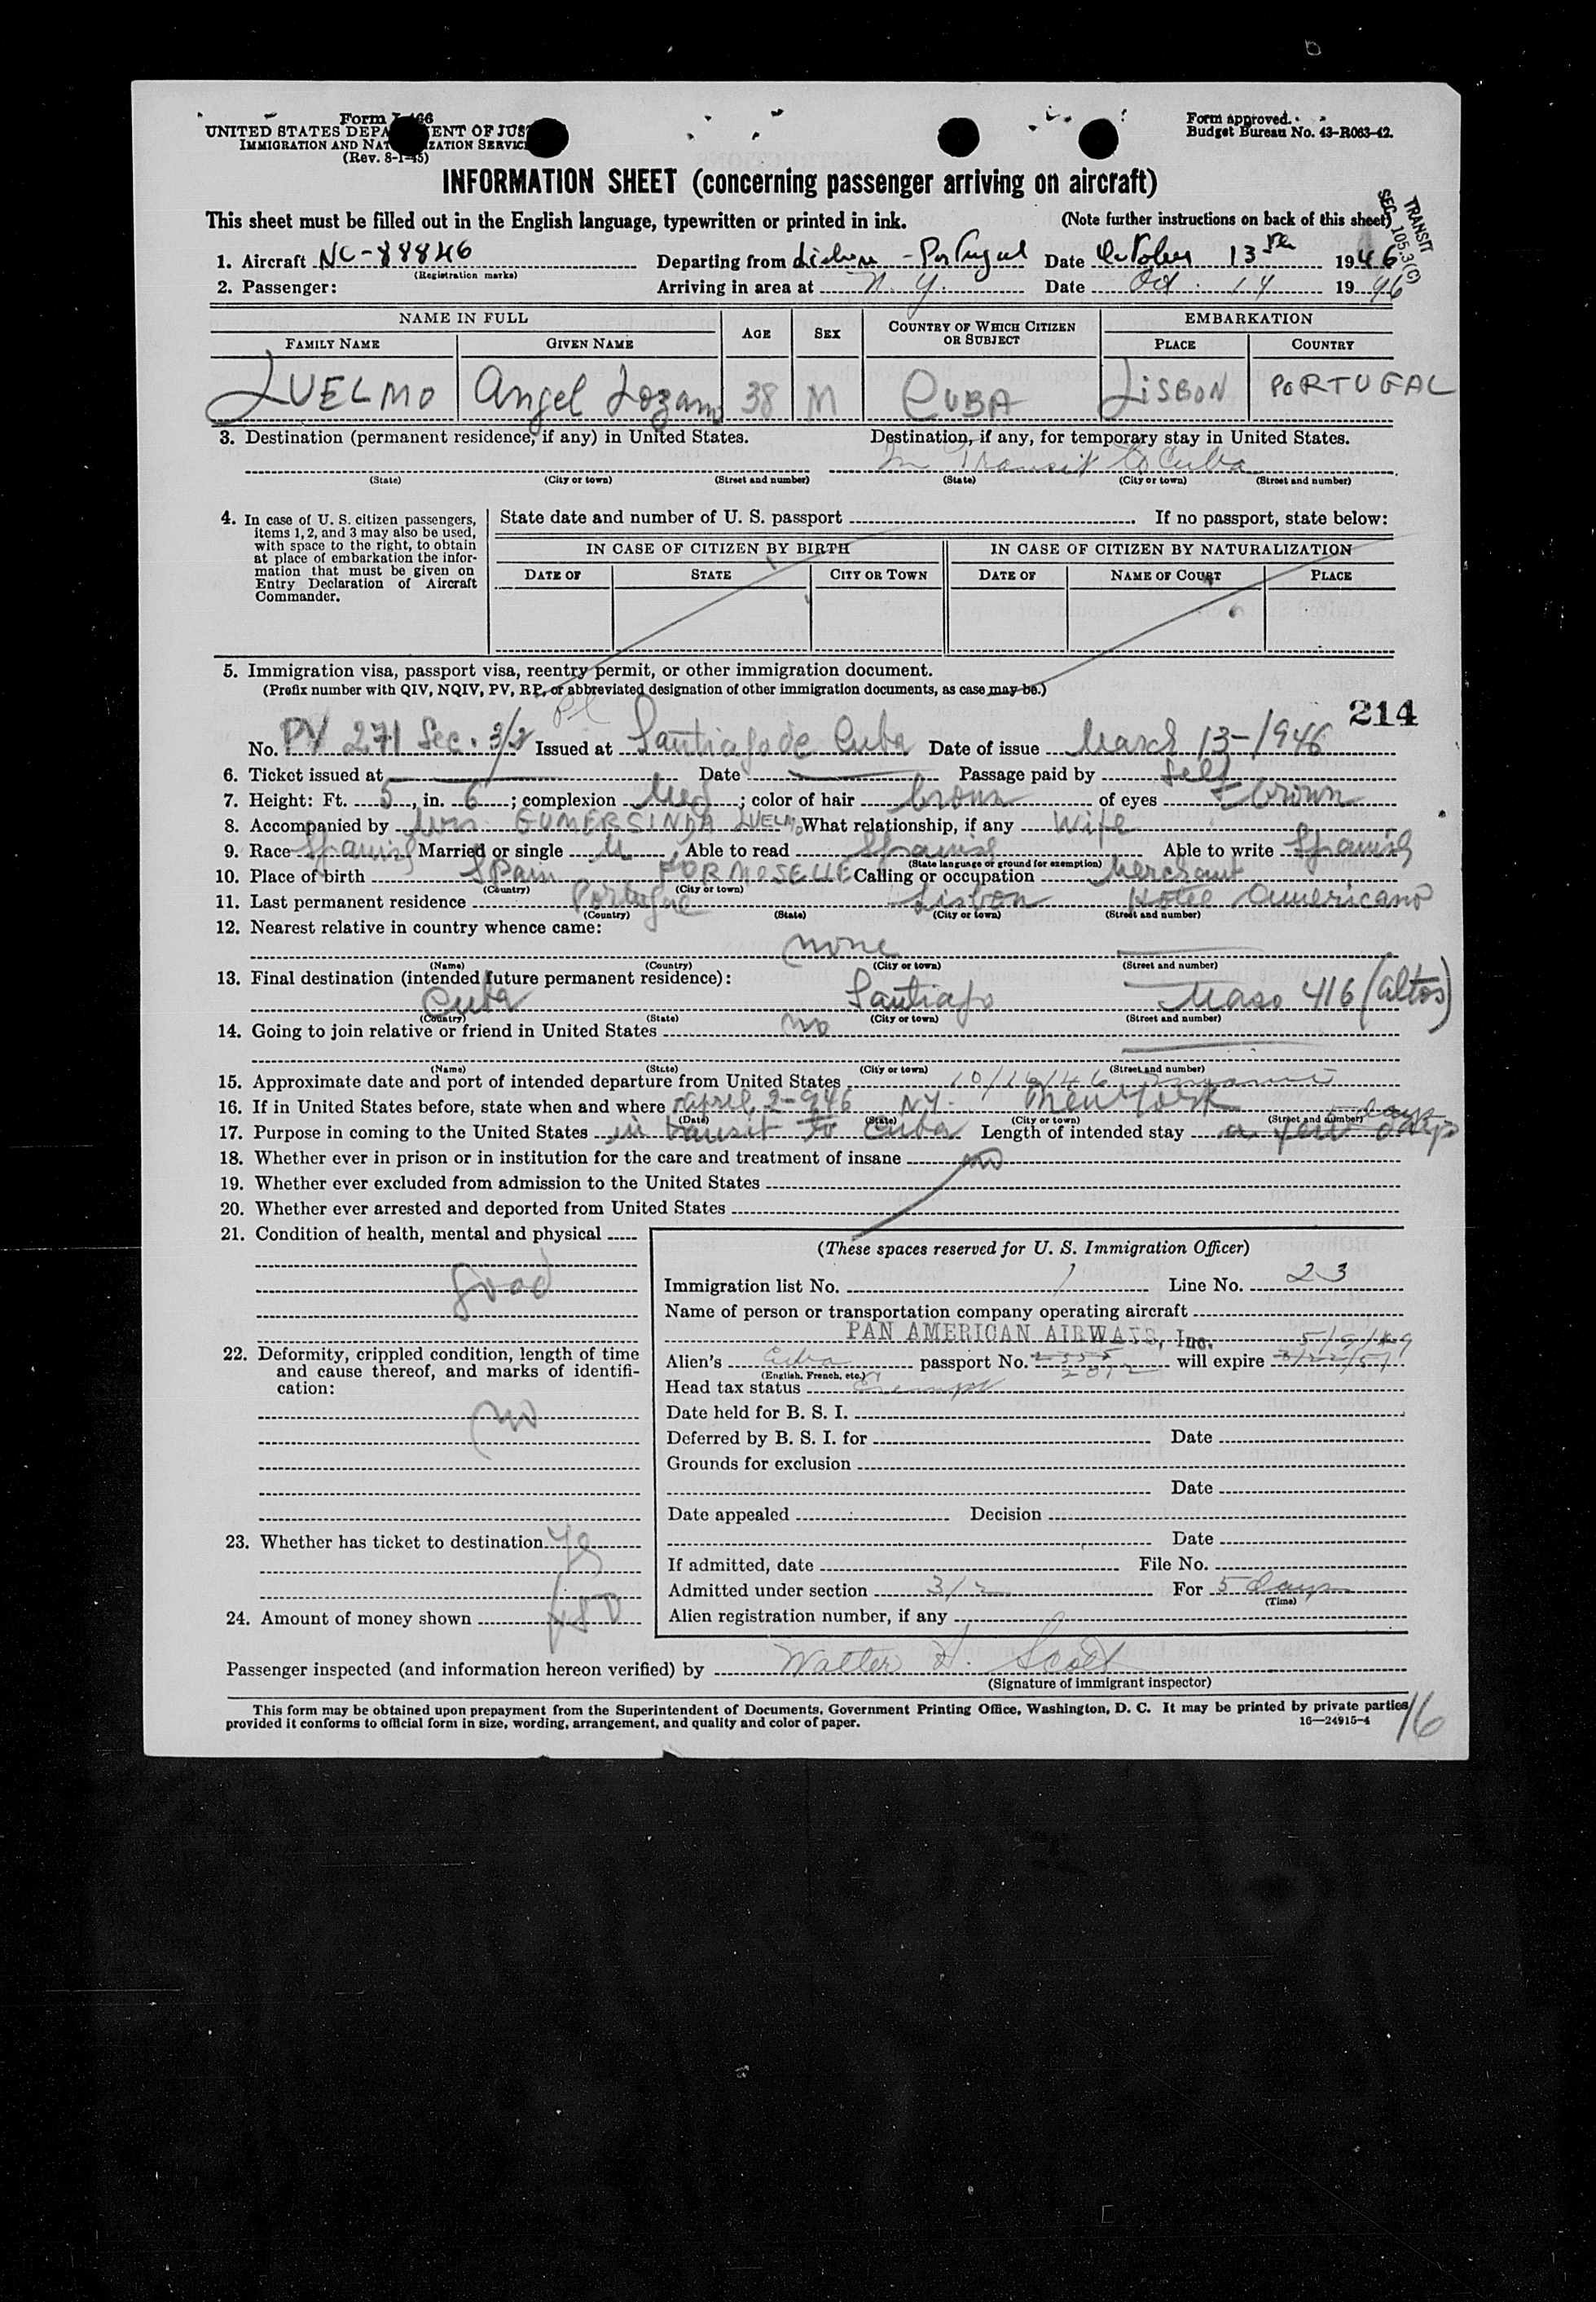 Form I-466
UNITED STATES DEPARTMENT OF JUSTICE
IMMIGRATION AND NATURALIZATION SERVICE
(Rev. 8-1-45)
Form approved.
Budget Bureau No. 43-R063-42.
INFORMATION SHEET (concerning passenger arriving on aircraft)
This sheet must be filled out in the English language, typewritten or printed in ink. (Note further instructions on back of this sheet)
TRANSIT
SEC. 105.3(C)
1. Aircraft NC-88846 Departing from Lisbon - Portugal Date October 13th 1946
(Registration marks)
2. Passenger: Arriving in area at N. Y. Date Oct. 14 1946
NAME IN FULL AGE SEX COUNTRY OF WHICH CITIZEN OR SUBJECT EMBARKATION
FAMILY NAME GIVEN NAME PLACE COUNTRY
LUELMO Angel Lozano 38 M CUBA LISBON PORTUGAL
3. Destination (permanent residence, if any) in United States. Destination, if any, for temporary stay in United States.
In Transit to Cuba
(State) (City or town) (Street and number) (State) (City or town) (Street and number)
4. In case of U. S. citizen passengers, items 1, 2, and 3 may also be used, with space to the right, to obtain at place of embarkation the information that must be given on Entry Declaration of Aircraft Commander.
State date and number of U. S. passport . If no passport, state below:
IN CASE OF CITIZEN BY BIRTH IN CASE OF CITIZEN BY NATURALIZATION
DATE OF STATE CITY OR TOWN DATE OF NAME OF COURT PLACE
5. Immigration visa, passport visa, reentry permit, or other immigration document.
(Prefix number with QIV, NQIV, PV, RP, or abbreviated designation of other immigration documents, as case may be.)
214
No. PV 271 Sec. 3/2 Issued at Santiago de Cuba Date of issue March 13-1946
6. Ticket issued at Date Passage paid by Self
7. Height: Ft. 5, in. 6; complexion Med; color of hair brown of eyes brown
8. Accompanied by Mrs GUMERSINDA LUELMO What relationship, if any Wife
9. Race Spanish Married or single M, Able to read Spanish Able to write Spanish
(State language or ground for exemption)
10. Place of birth SPain FORMOSELLE Calling or occupation Merchant
(Country) (City or town)
11. Last permanent residence Portugal Lisbon Hotel Americano
(Country) (State) (City or town) (Street and number)
12. Nearest relative in country whence came:
none
(Name) (Country) (City or town) (Street and number)
13. Final destination (intended future permanent residence):
Cuba Santiago Maso 416 (altos)
(Country) (State) (City or town) (Street and number)
14. Going to join relative or friend in United States no
(Name) (State) (City or town) (Street and number)
15. Approximate date and port of intended departure from United States 10/19/46 Miami
16. If in United States before, state when and where April 2-946 NY. New York
(Date) (State) (City or town) (Street and number)
5 days
17. Purpose in coming to the United States in transit to Cuba Length of intended stay a few days
18. Whether ever in prison or in institution for the care and treatment of insane no
19. Whether ever excluded from admission to the United States
20. Whether ever arrested and deported from United States
21. Condition of health, mental and physical
good
22. Deformity, crippled condition, length of time and cause thereof, and marks of identification:
no
23. Whether has ticket to destination yes
24. Amount of money shown
(These spaces reserved for U. S. Immigration Officer)
Immigration list No. 1 Line No. 23
Name of person or transportation company operating aircraft
PAN AMERICAN AIRWAYS, Inc.
Alien's Cuba passport No. will expire
(English, French, etc.)
Head tax status Exempt
Date held for B. S. I.
Deferred by B. S. I. for Date
Grounds for exclusion
Date
Date appealed Decision
Date
If admitted, date File No.
Admitted under section 3/2 For 5 days
(Time)
Alien registration number, if any
Passenger inspected (and information hereon verified) by Walter H. Scott
(Signature of immigrant inspector)
This form may be obtained upon prepayment from the Superintendent of Documents, Government Printing Office, Washington, D. C. It may be printed by private parties
provided it conforms to official form in size, wording, arrangement, and quality and color of paper. 16—24915-4
16